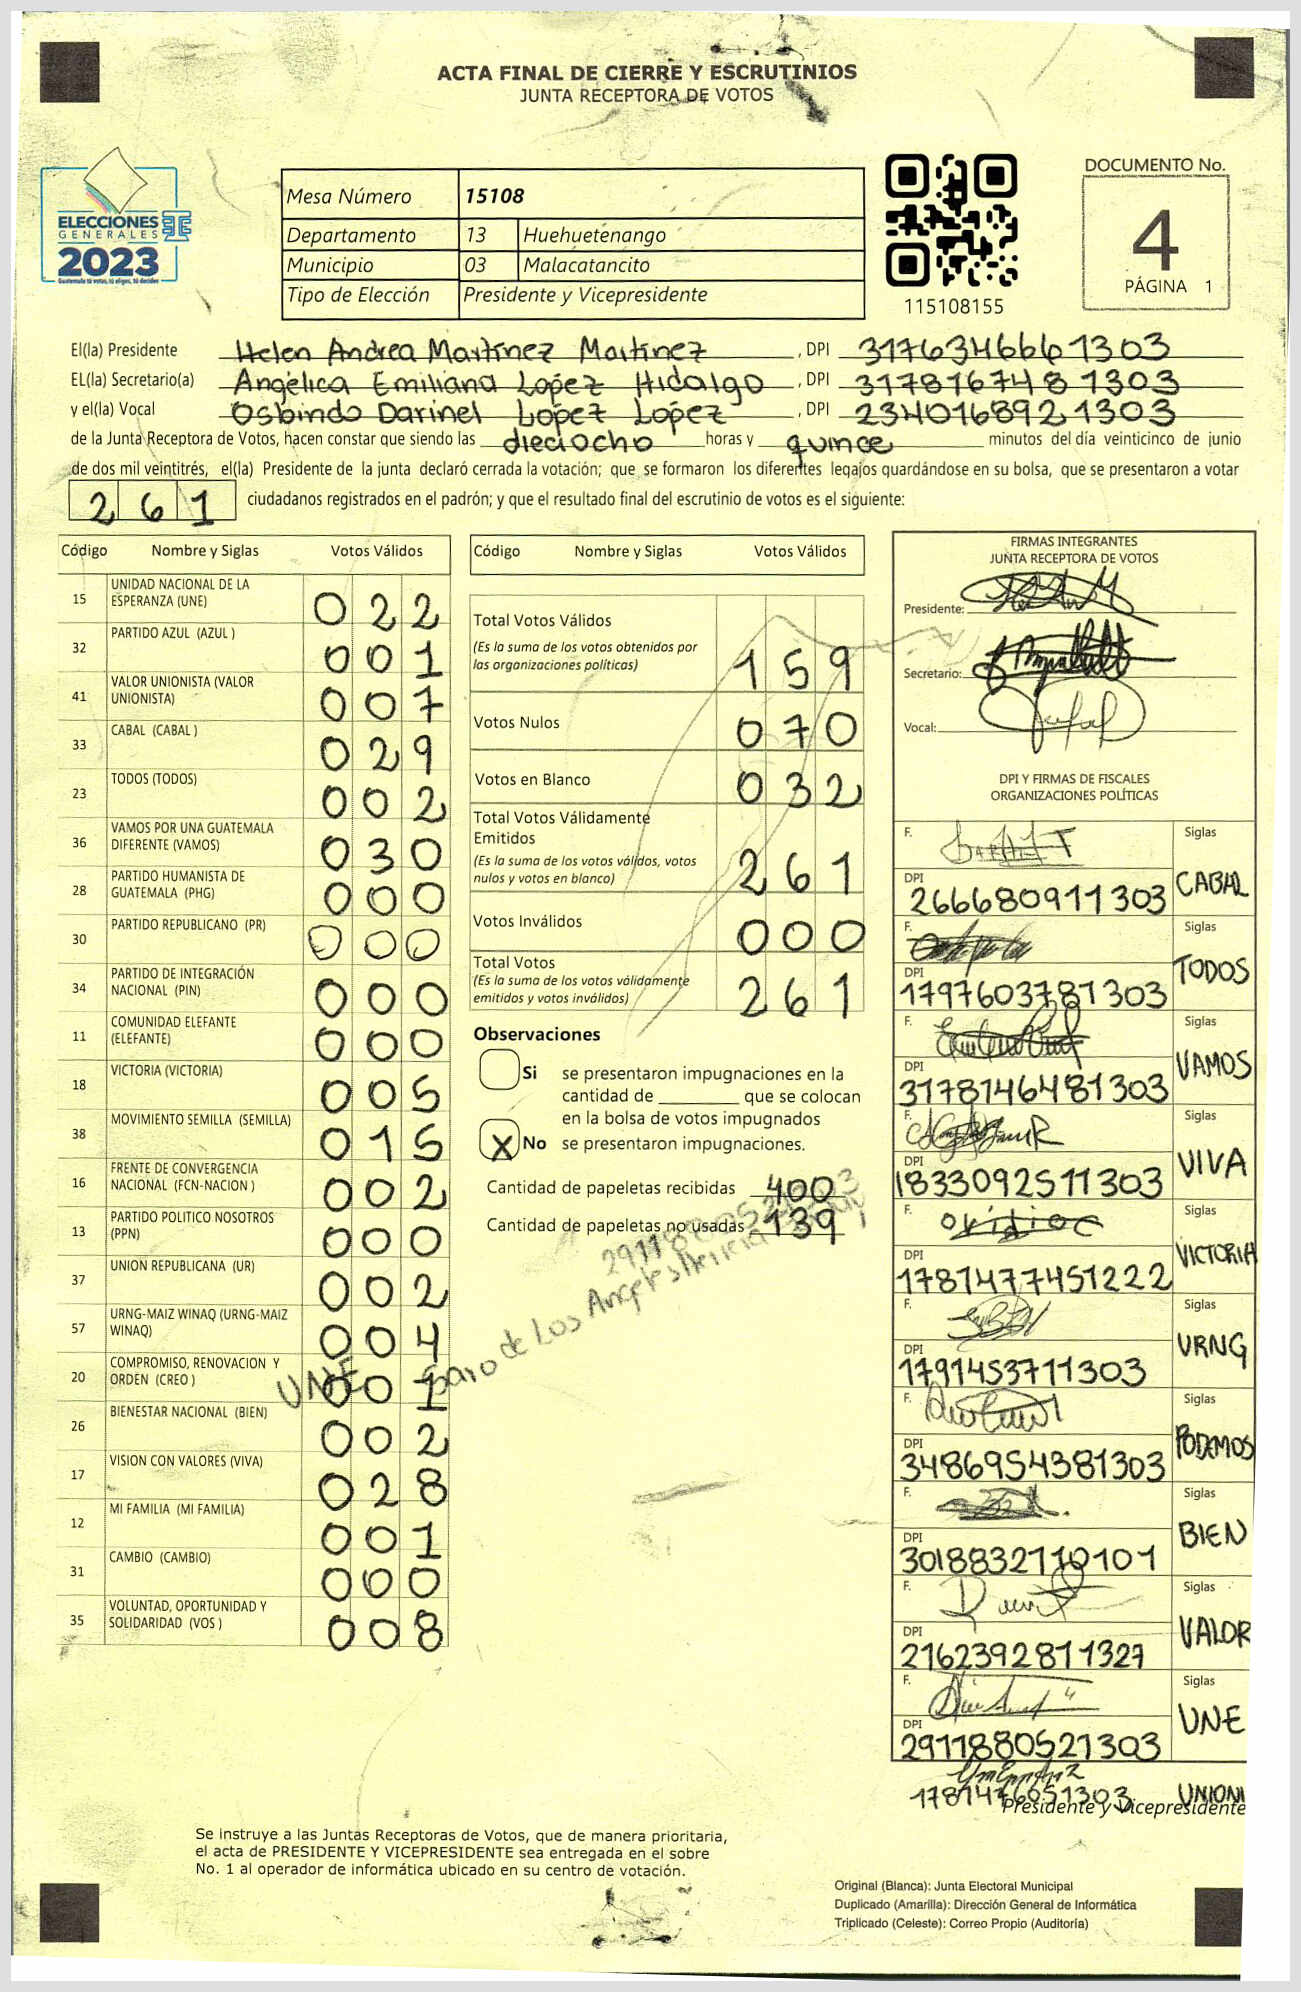 ACTA FINAL DE CIERRE Y ESCRUTINIOS
JUNTA RECEPTORA DE VOTOS
ELECCIONES
GENERALES
2023
Guatemala tú votas, tú eliges, tú decides
Mesa Número 15108
Departamento 13 Huehuetenango
Municipio 03 Malacatancito
Tipo de Elección Presidente y Vicepresidente
115108155
DOCUMENTO No.
4
PÁGINA 1
El(la) Presidente Helen Andrea Martínez Martínez , DPI 3176346661303
EL(la) Secretario(a) Angélica Emiliana López Hidalgo , DPI 3178167481303
y el(la) Vocal Osbindo Darinel López López , DPI 2340168921303
de la Junta Receptora de Votos, hacen constar que siendo las dieciocho horas y quince minutos del día veinticinco de junio
de dos mil veintitrés, el(la) Presidente de la junta declaró cerrada la votación; que se formaron los diferentes legajos quardándose en su bolsa, que se presentaron a votar
261 ciudadanos registrados en el padrón; y que el resultado final del escrutinio de votos es el siguiente:
Código Nombre y Siglas Votos Válidos
15 UNIDAD NACIONAL DE LA ESPERANZA (UNE) 022
32 PARTIDO AZUL (AZUL ) 001
41 VALOR UNIONISTA (VALOR UNIONISTA) 007
33 CABAL (CABAL ) 029
23 TODOS (TODOS) 002
36 VAMOS POR UNA GUATEMALA DIFERENTE (VAMOS) 030
28 PARTIDO HUMANISTA DE GUATEMALA (PHG) 000
30 PARTIDO REPUBLICANO (PR) 000
34 PARTIDO DE INTEGRACIÓN NACIONAL (PIN) 000
11 COMUNIDAD ELEFANTE (ELEFANTE) 000
18 VICTORIA (VICTORIA) 005
38 MOVIMIENTO SEMILLA (SEMILLA) 015
16 FRENTE DE CONVERGENCIA NACIONAL (FCN-NACION ) 002
13 PARTIDO POLITICO NOSOTROS (PPN) 000
37 UNION REPUBLICANA (UR) 002
57 URNG-MAIZ WINAQ (URNG-MAIZ WINAQ) 004
20 COMPROMISO, RENOVACION Y ORDEN (CREO ) 001
26 BIENESTAR NACIONAL (BIEN) 002
17 VISION CON VALORES (VIVA) 028
12 MI FAMILIA (MI FAMILIA) 001
31 CAMBIO (CAMBIO) 000
35 VOLUNTAD, OPORTUNIDAD Y SOLIDARIDAD (VOS ) 008
UNE
Código Nombre y Siglas Votos Válidos
Total Votos Válidos 159
(Es la suma de los votos obtenidos por
las organizaciones políticas)
Votos Nulos 070
Votos en Blanco 032
Total Votos Válidamente
Emitidos 261
(Es la suma de los votos válidos, votos
nulos y votos en blanco)
Votos Inválidos 000
Total Votos 261
(Es la suma de los votos válidamente
emitidos y votos inválidos)
Observaciones
Si se presentaron impugnaciones en la
cantidad de ________ que se colocan
en la bolsa de votos impugnados
X No se presentaron impugnaciones.
Cantidad de papeletas recibidas 400
Cantidad de papeletas no usadas 139
2911880521303
de Los Angeles
FIRMAS INTEGRANTES
JUNTA RECEPTORA DE VOTOS
Presidente:
Secretario:
Vocal:
DPI Y FIRMAS DE FISCALES
ORGANIZACIONES POLÍTICAS
F. Siglas
DPI 266680911303 CABAL
F. Siglas
DPI 1797603781303 TODOS
F. Siglas
DPI 3178146481303 VAMOS
F. Siglas
DPI 1833092511303 VIVA
F. Siglas
DPI 1781477451222 VICTORIA
F. Siglas
DPI 1791453711303 URNG
F. Siglas
DPI 3486954381303 PODEMOS
F. Siglas
DPI 3018832110101 BIEN
F. Siglas
DPI 2162392811327 VALOR
F. Siglas
DPI 2911880521303 UNE
1781476051303 UNIONI
Presidente y Vicepresidente
Se instruye a las Juntas Receptoras de Votos, que de manera prioritaria,
el acta de PRESIDENTE Y VICEPRESIDENTE sea entregada en el sobre
No. 1 al operador de informática ubicado en su centro de votación.
Original (Blanca): Junta Electoral Municipal
Duplicado (Amarilla): Dirección General de Informática
Triplicado (Celeste): Correo Propio (Auditoría)